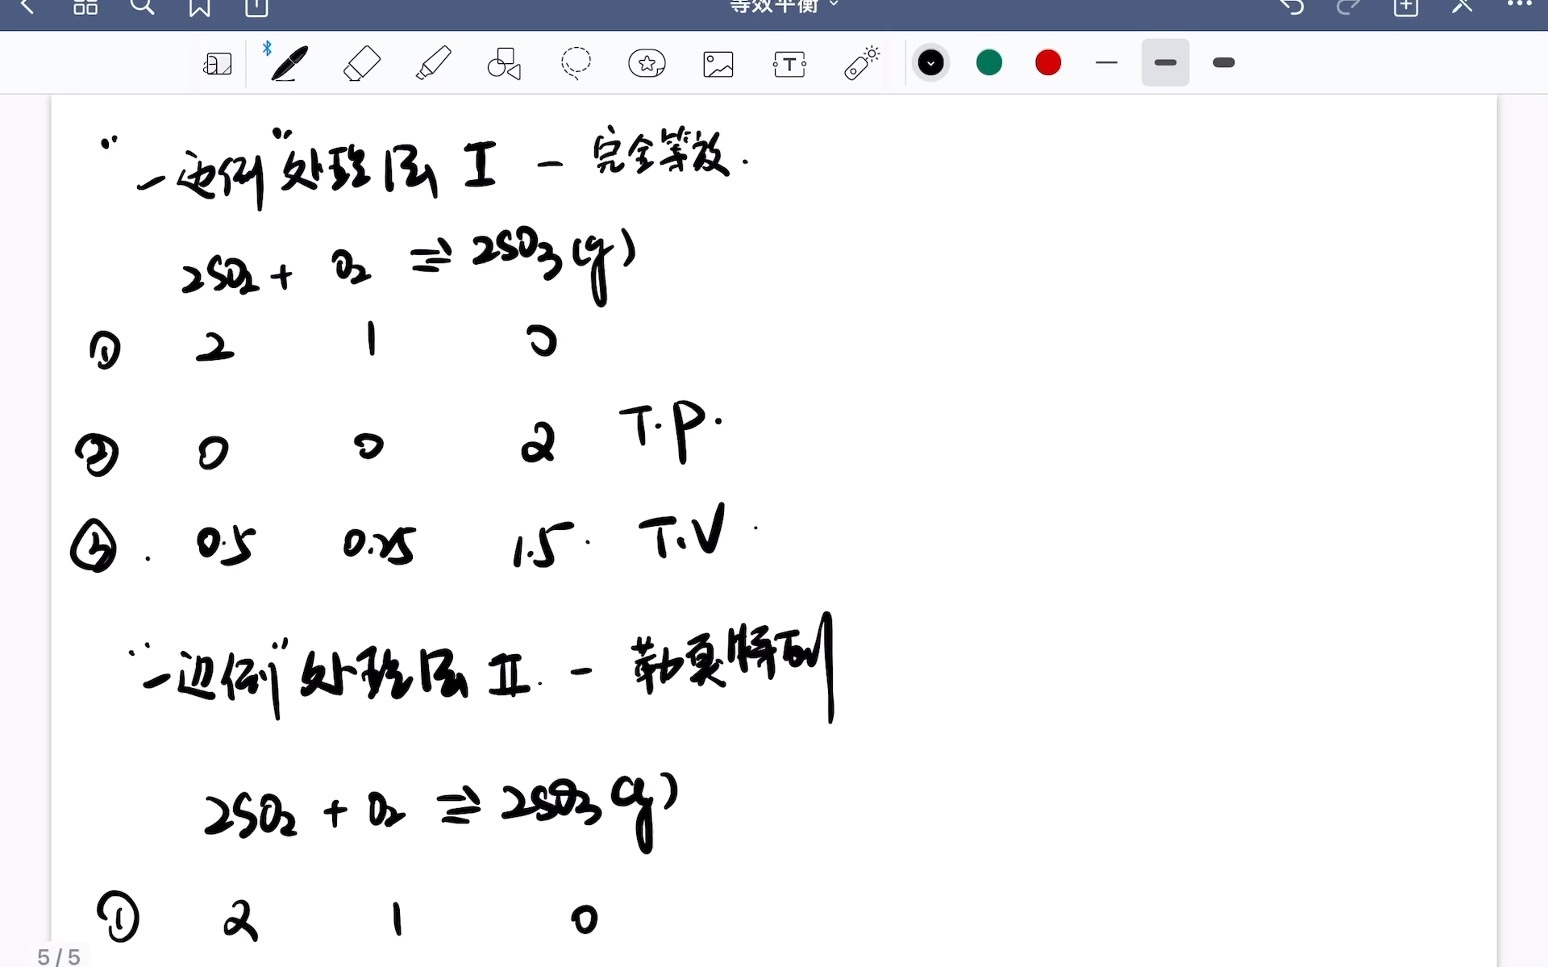 等效平衡
"一边倒"处理层 I - 完全等效.
2SO₂ + O₂ ⇌ 2SO₃(g)
① 2 1 0
② 0 0 2 T.P.
③. 0.5 0.25 1.5. T.V.
"一边倒"处理层 II. - 勒夏特列
2SO₂ + O₂ ⇌ 2SO₃(g)
① 2 1 0
5/5